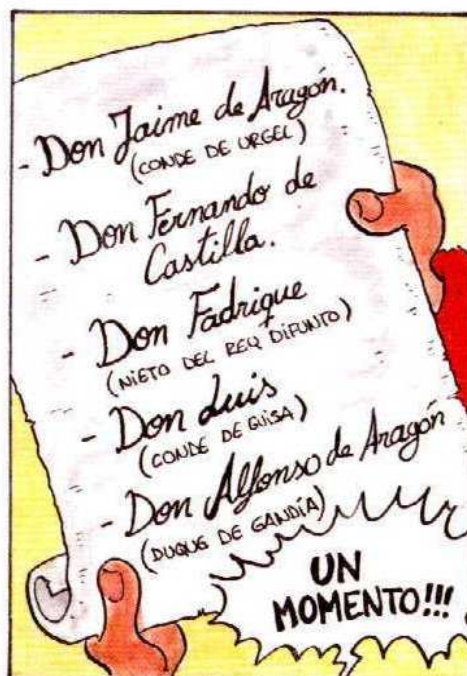 - Don Jaime de Aragón.
(CONDE DE URGEL)
- Don Fernando de
Castilla.
- Don Fadrique
(NIETO DEL REY DIFUNTO)
- Don Luis
(CONDE DE GUISA)
- Don Alfonso de Aragón
(DUQUE DE GANDÍA)
UN
MOMENTO!!!